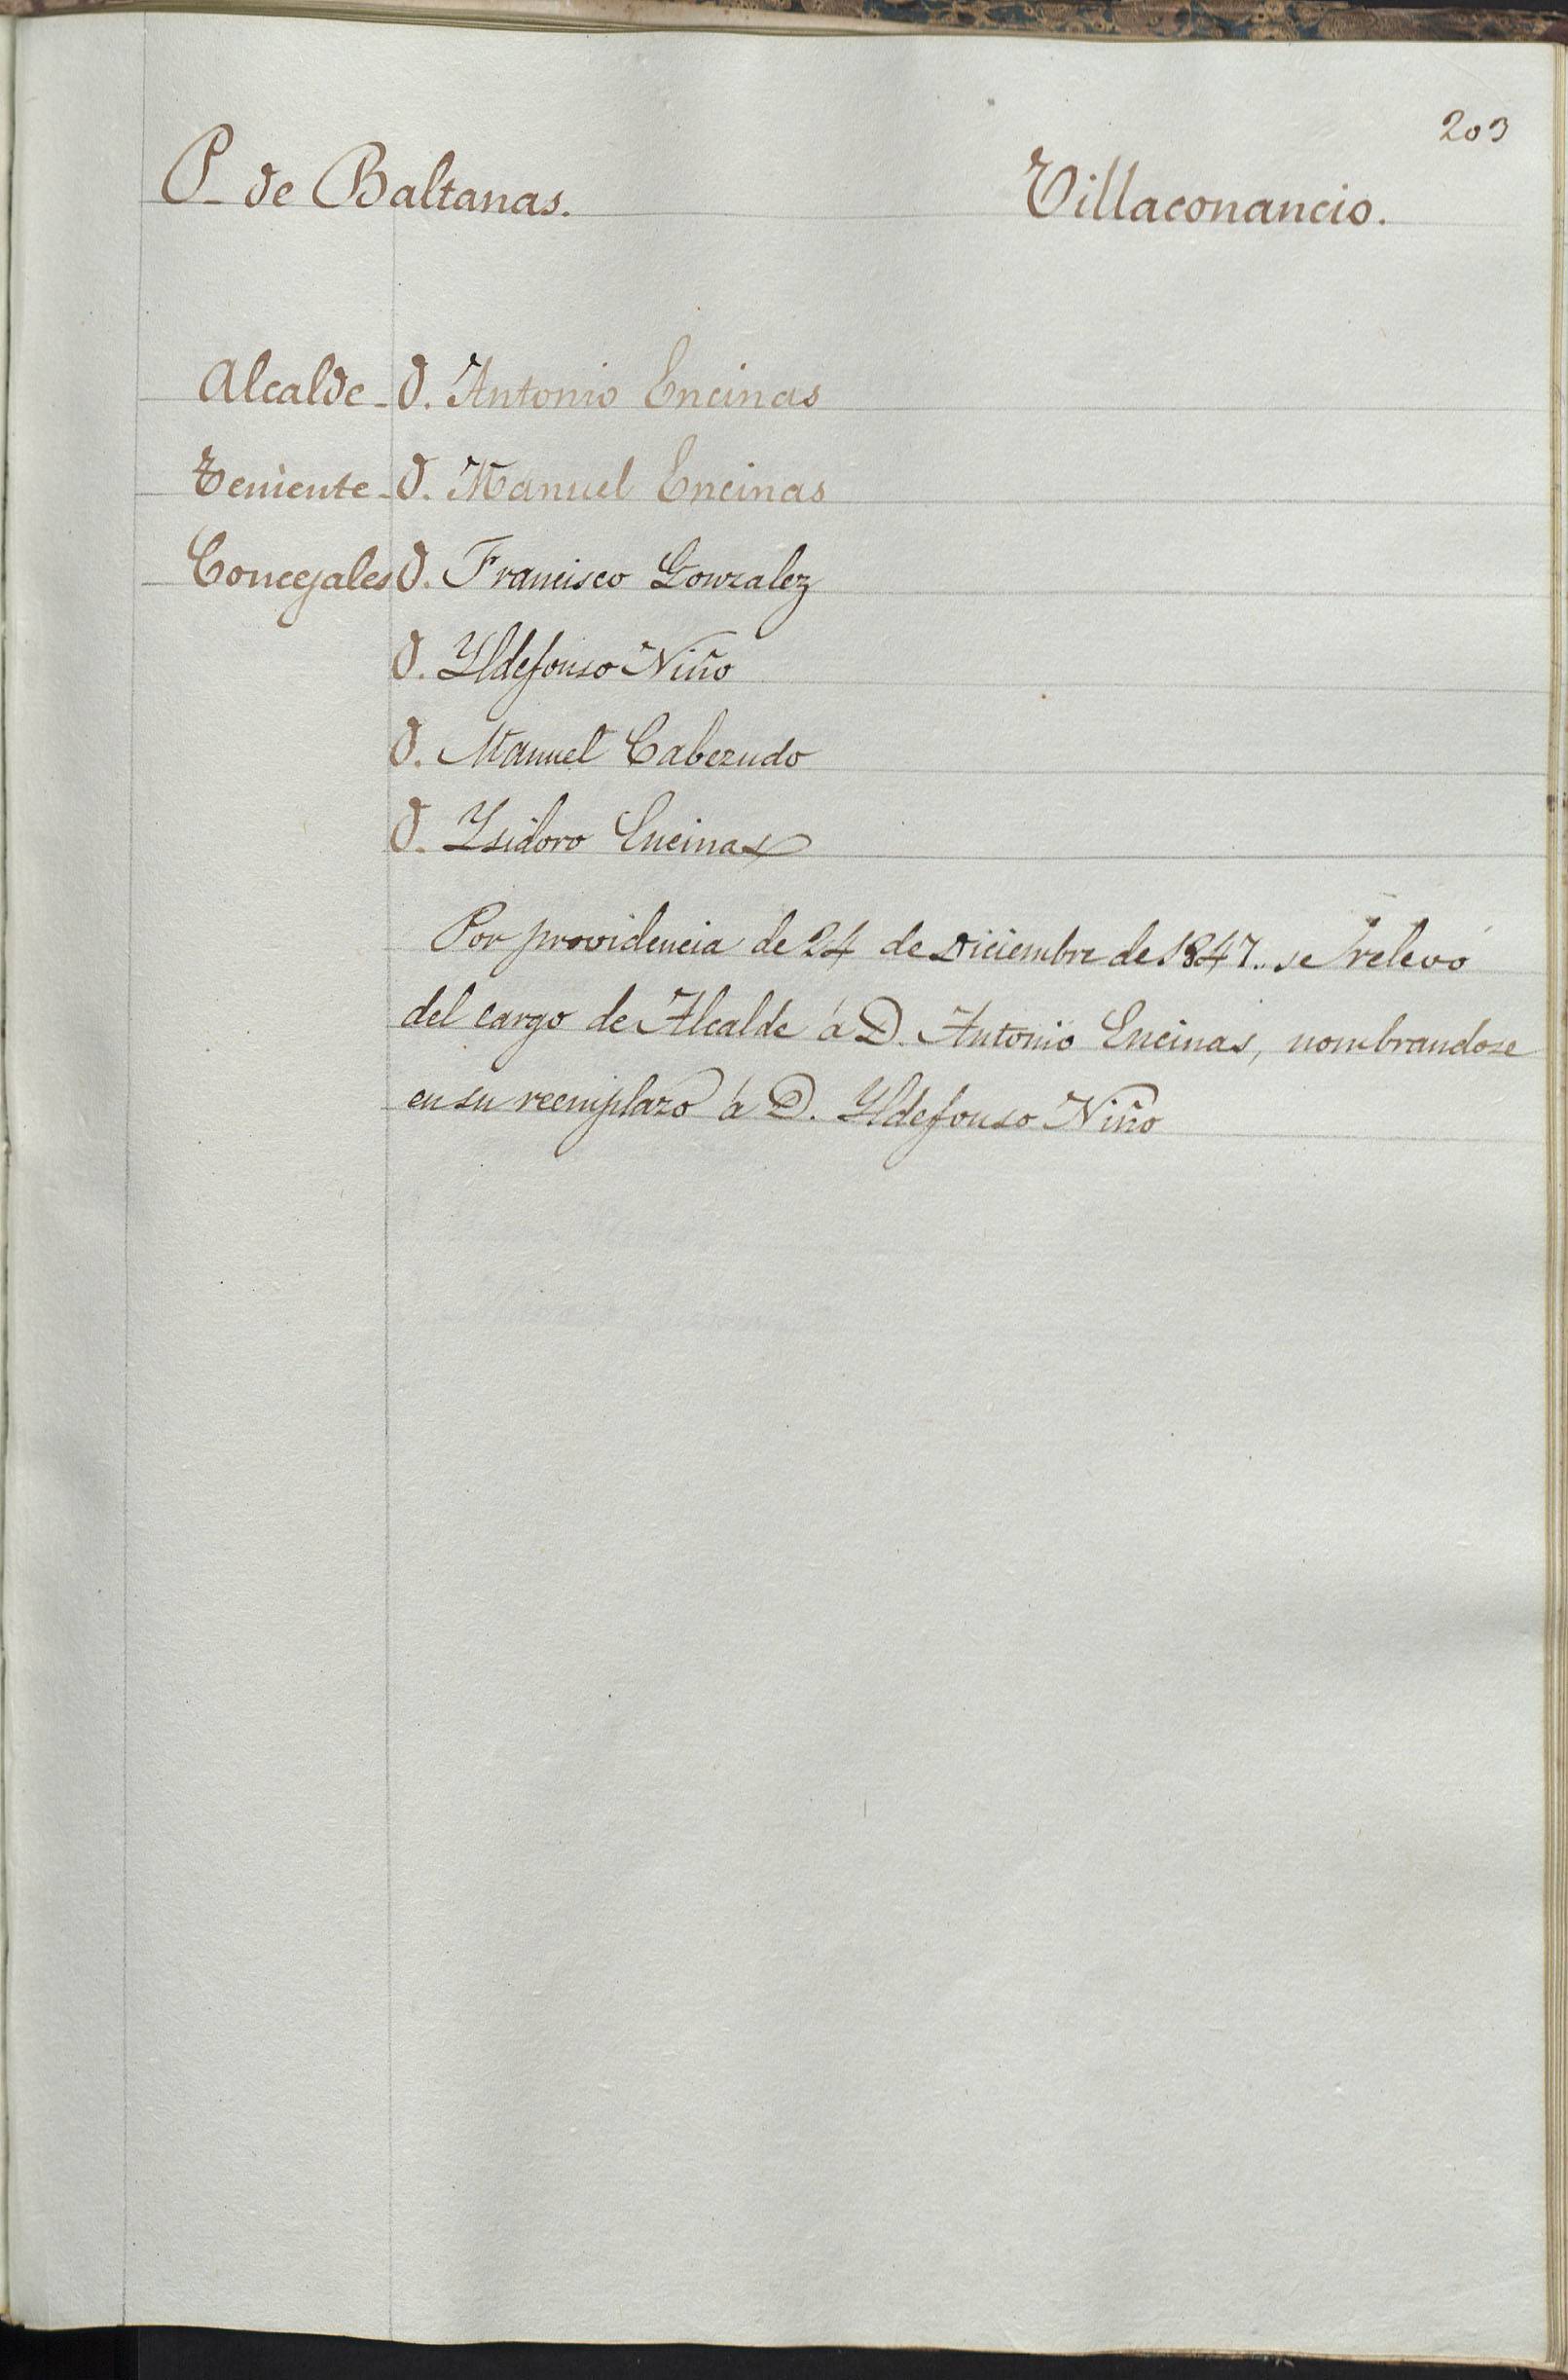 203
P. de Baltanas.
Villaconancio.
Alcalde - D. Antonio Encinas
Teniente - D. Manuel Encinas
Concejales D. Francisco Gonzalez
D. Yldefonso Niño
D. Manuel Cabezudo
D. Ysidoro Encinas
Por providencia de 24 de Diciembre de 1847.. se relevó
del cargo de Alcalde á D. Antonio Encinas, nombrandose
en su reemplazo á D. Yldefonso Niño